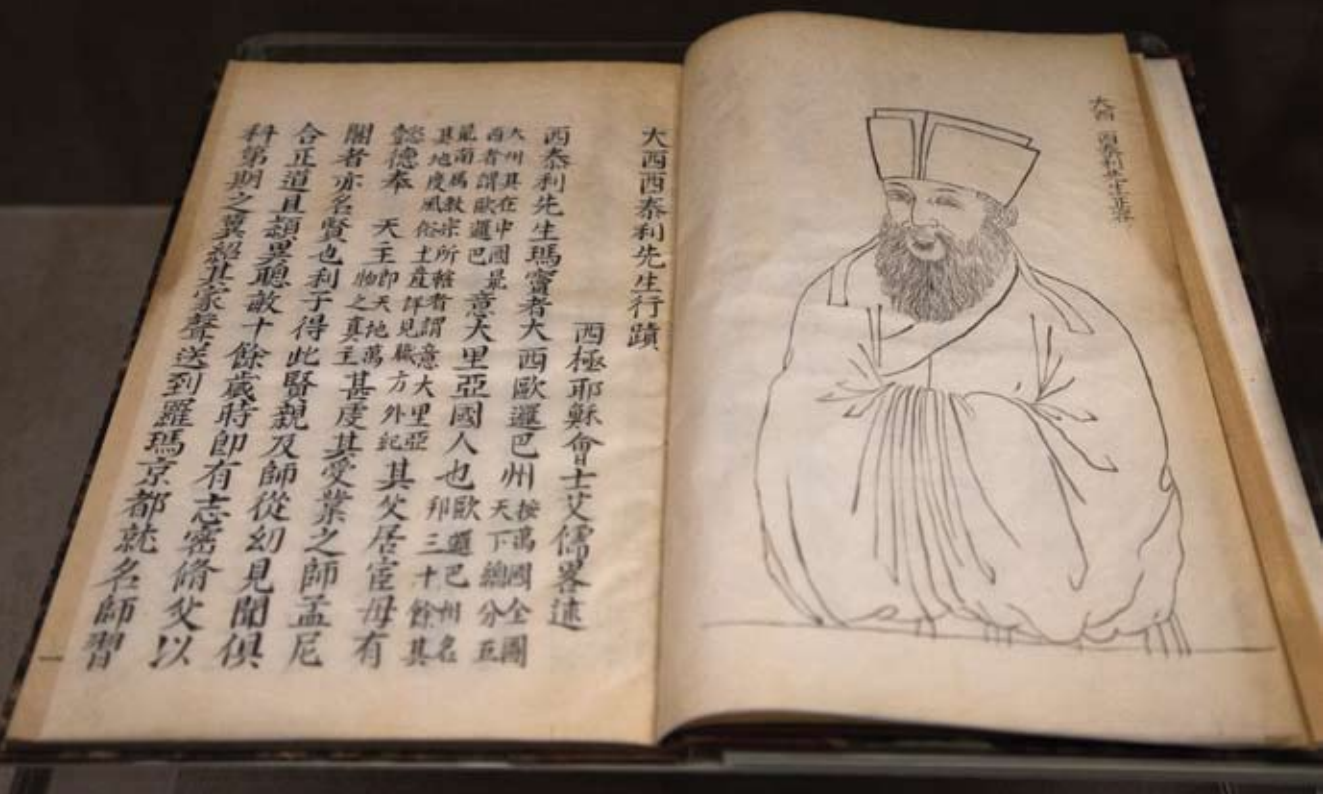 大西 西泰利先生
大西西泰利先生行蹟
西極耶穌會士艾儒畧述
西泰利先生瑪竇者大西歐邏巴州按萬國全圖天下總分五
大州其在中國最西者謂歐邏巴意大里亞國人也歐邏巴州名邦三十餘其
最南爲教宗所轄者謂意大里亞其地度風俗土產詳見職方外紀其父居宦母有
懿德奉 天主即天地萬物之真主甚虔其受業之師孟尼
閣者亦名賢也利子得此賢親及師從幼見聞俱
合正道且穎異聰敏十餘歲時即有志密脩父以
科第期之冀紹其家聲送到羅瑪京都就名師習